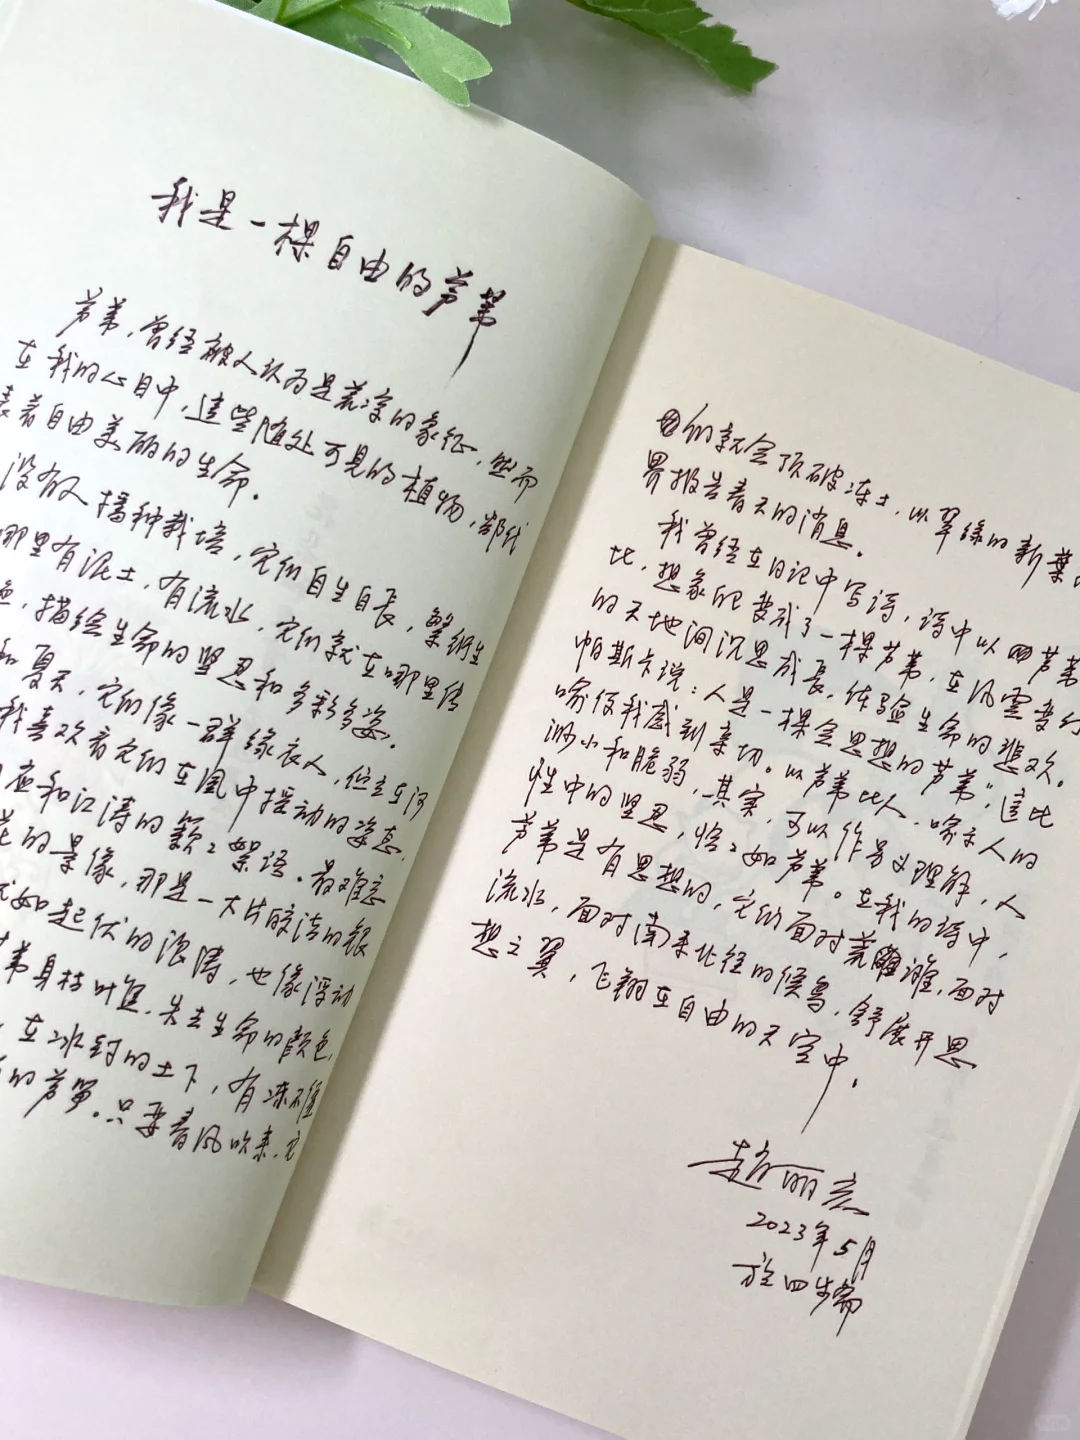 我是一棵自由的芦苇
芦苇，曾经被人认为是荒凉的象征，然而
在我的心目中，这些随处可见的植物，都代
表着自由美丽的生命。
没有人播种栽培，它们自生自長，繁衍生
哪里有泥土，有流水，它们就在哪里传
色，描绘生命的坚忍和多彩多姿。
和夏天，它们像一群绿衣人，伫立在河
我喜欢看它们在風中摇动的姿态，
应和江涛的籁籁絮语。最难忘
花的景像，那是一大片皎洁的银
犹如起伏的浪涛，也像浮动
苇身枯叶焦，失去生命的颜色，
，在冰封的土下，有冻不僵
的芦笋。只要春风吹来，它
们就会顶破冻土，以翠绿的新葉
界报告春天的消息。
我曾经在日记中写诗，诗中以芦苇
比，想象自己变成了一棵芦苇，在风雲变幻
的天地间沉思成長，体验生命的悲欢。
帕斯卡说：人是一棵会思想的芦苇"，這比
喻使我感到亲切。以芦苇比人，喻示人的
渺小和脆弱，其实，可以作另义理解，人
性中的坚忍，恰恰如芦苇。在我的诗中，
芦苇是有思想的，它们面对荒滩，面对
流水，面对南来北往的候鸟，舒展开思
想之翼，飞翔在自由的天空中。
赵丽宏
2023年5月
於四步斋